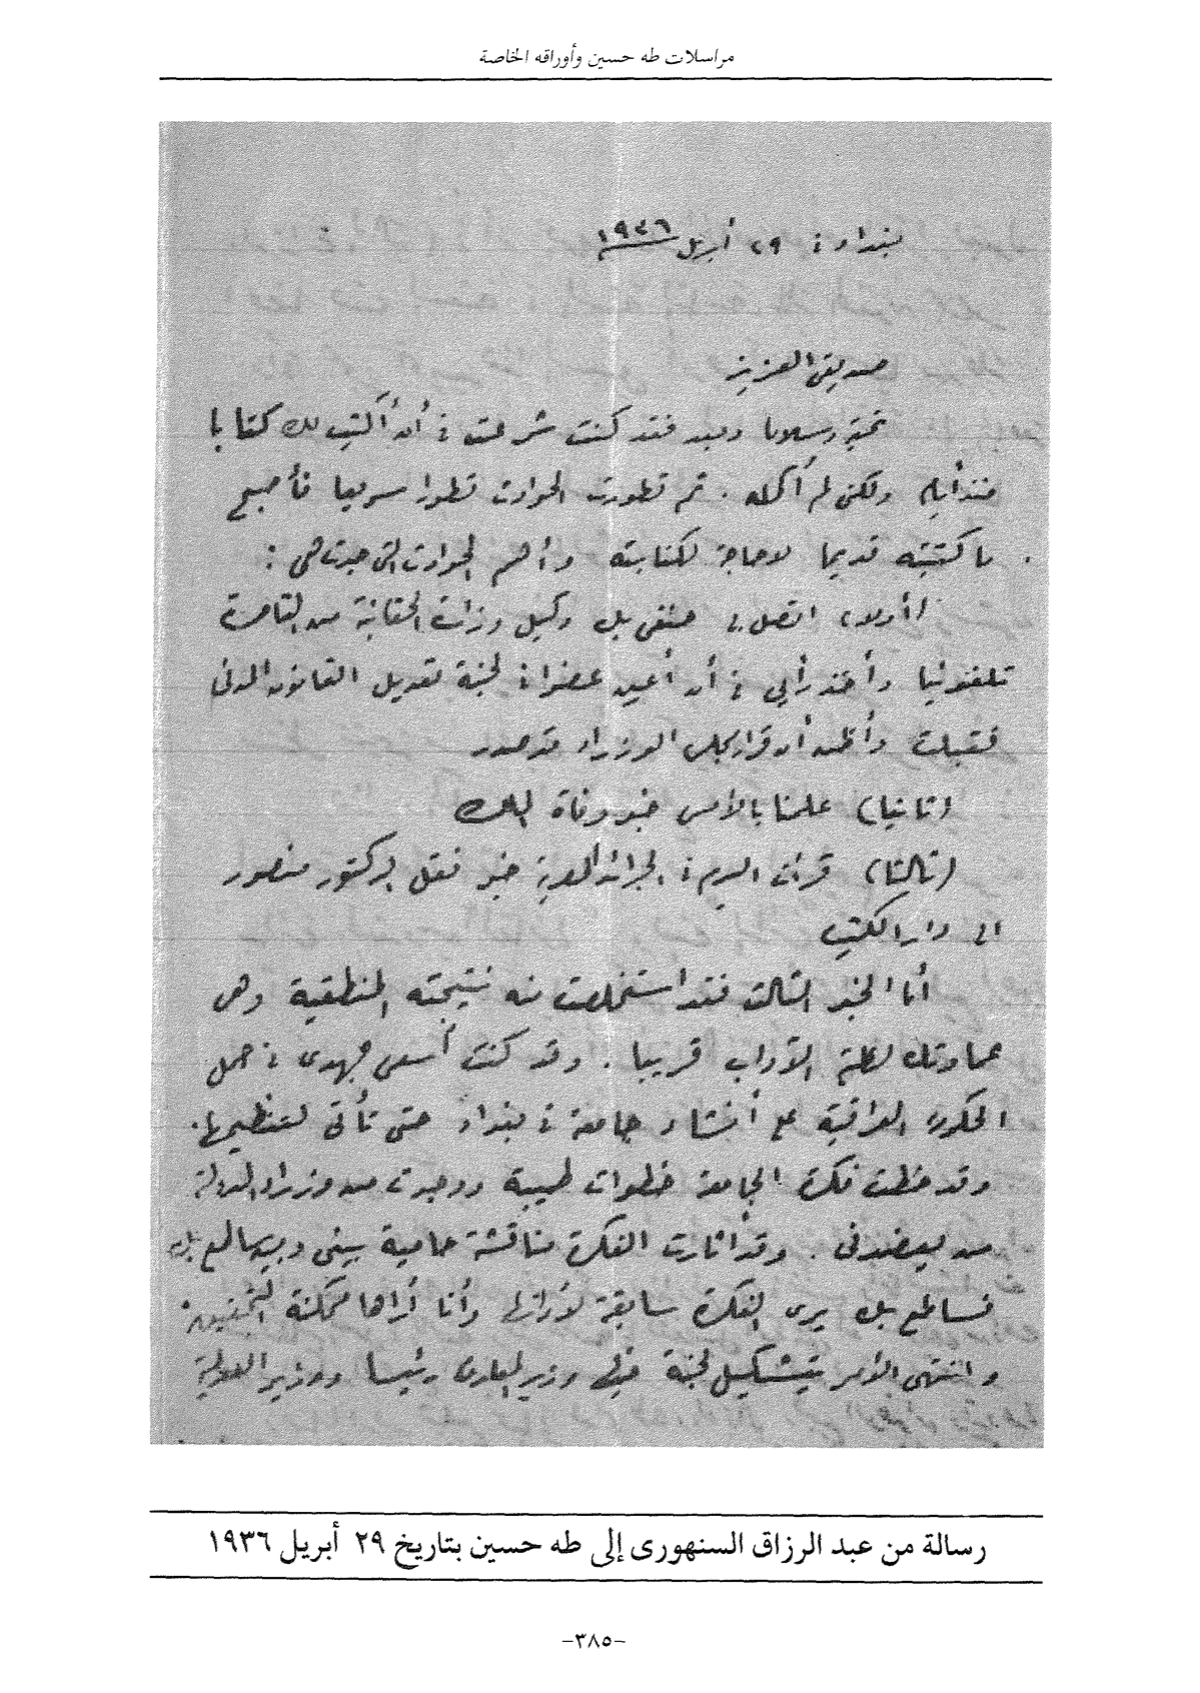 مراسلات طه حسين وأوراقه الخاصة
بغداد في ٢٩ أبريل ١٩٣٦
صديقى العزيز
تحية وسلاما وبعد فقد كنت شرعت فى أن أكتب لك كتابا
منذ أيام ولكنى لم أكمله . ثم تطورت الحوادث تطورا سريعا فأصبح
ما كتبته قديما لا حاجة لكتابته وأهم الحوادث التى جدت هى :
(أولا) اتصل بى بك وكيل وزارة الحقانية من القاهرة
تلفونيا وأخذ رأيى فى أن أعين عضوا فى لجنة تعديل القانون المدنى
فقبلت وأظن أن قرار مجلس الوزراء قد صدر
(ثانيا) علمنا بالأمس خبر وفاة الملك
(ثالثا) قرأت اليوم فى الجرائد المصرية خبر نقل الدكتور منصور
الى دار الكتب
أما الخبر الثالث فقد استخلصت منه نتيجته المنطقية وهى
عمادتك لكلية الآداب قريبا . وقد كنت أسعى جهدى فى حمل
الحكومة العراقية على أنشاء جامعة فى بغداد حتى تأتى لتنظيمها .
وقد خطت فكرة الجامعة خطوات طيبة ووجدت من وزراء الدولة
من يعضدنى . وقد أثارت الفكرة مناقشة حامية بينى وبين ساطع بك
فساطع بك يرى الفكرة سابقة لأوانها وأنا أراها ممكنة التحقيق
وانتهى الأمر بتشكيل لجنة فيها وزير المعارف رئيسا ووزير العدلية
رسالة من عبد الرزاق السنهورى إلى طه حسين بتاريخ ٢٩ أبريل ١٩٣٦
–٣٨٥–